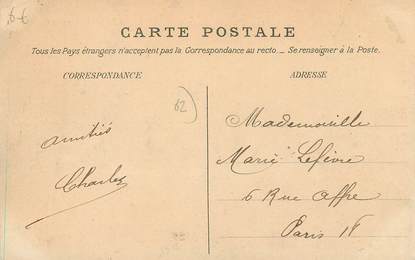 6-€
CARTE POSTALE
Tous les Pays étrangers n'acceptent pas la Correspondance au recto. — Se renseigner à la Poste.
CORRESPONDANCE
ADRESSE
62
amitiés
Charles
Mademoiselle
Marie Lefèvre
6 Rue Affre
Paris 18